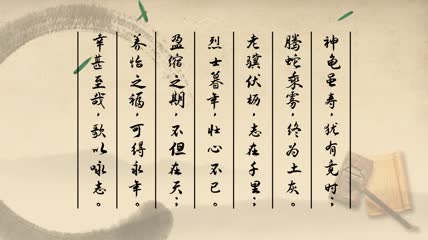 神龟虽寿，犹有竟时；
腾蛇乘雾，终为土灰。
老骥伏枥，志在千里；
烈士暮年，壮心不已。
盈缩之期，不但在天；
养怡之福，可得永年。
幸甚至哉，歌以咏志。